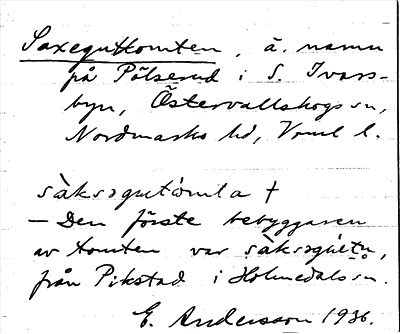 Saxeguttomten, ä. namn
på Pölserud i S. Ivars-
byn, Östervallskogs sn,
Nordmarks hd, Vrml l.
sàksəgutòmta †
— Den förste bebyggaren
av tomten var sàksəgùtn,
från Pikstad i Holmedals sn.
E. Andersson 1936.